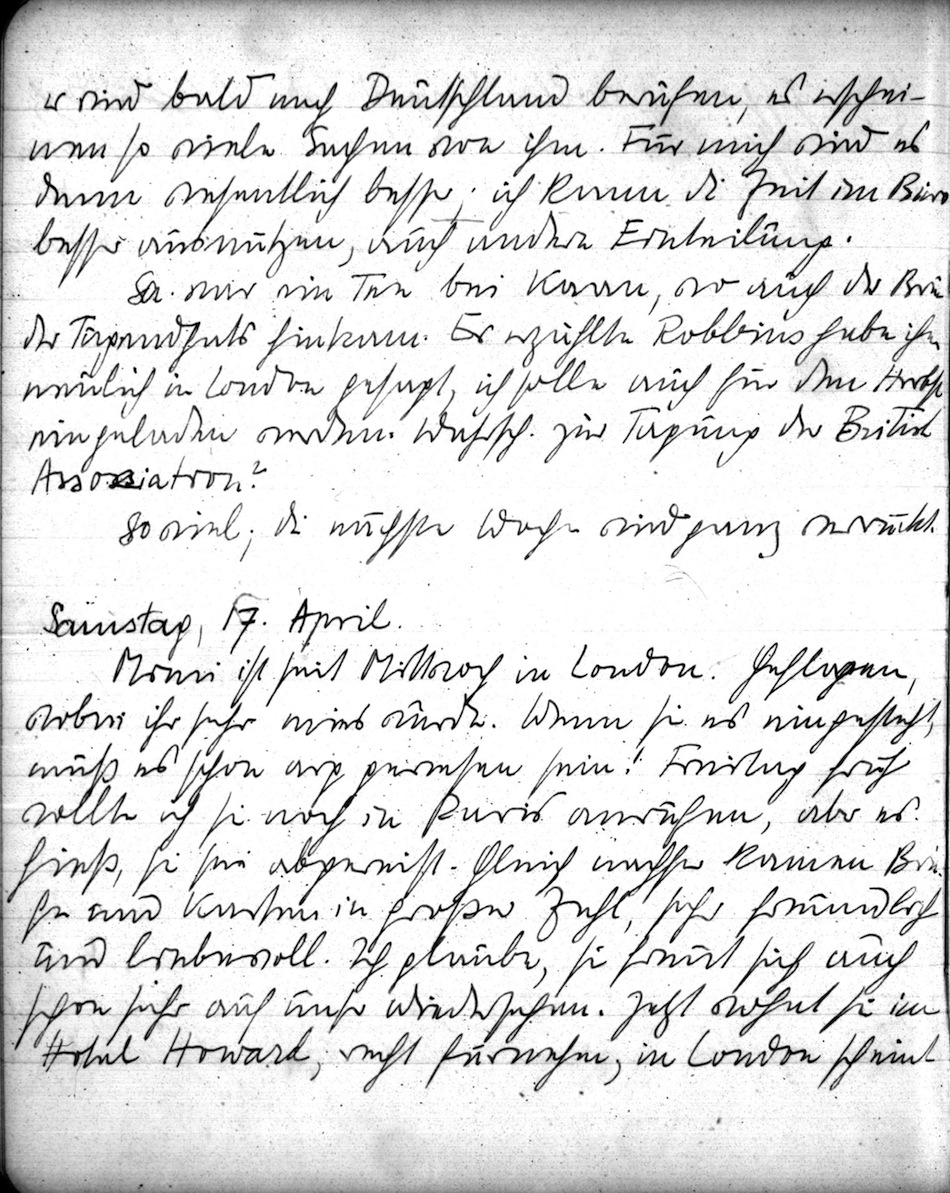 er wird bald nach Deutschland berufen, es erschei-
nen so viele Sachen von ihm. Für mich wird es
dann wesentlich besser; ich kann die Zeit im Büro
besser ausnutzen, auch andere Einteilung.
Sa. war ein Tee bei Kaan, wo auch der
der Tugendhats hinkam. Er erzählte Robbins habe ihm
neulich in London gesagt, ich solle auch für den Herbst
eingeladen werden. Wahrsch. zur Tagung der British
Association?
So viel; die nächsten Wochen sind ganz verrückt.
Samstag, 17. April.
ist seit Mittwoch in London. Geflogen,
wobei ihr sehr mies wurde. Wenn sie es eingesteht,
muß es schon arg gewesen sein! Freitag früh
wollte ich sie noch in Paris anrufen, aber es
hieß, sie sei abgereist. Gleich nachher kamen Brie-
fe und Karten in großer Zahl, sehr freundlich
und liebevoll. Ich glaube, sie freut sich auch
schon sehr auf unser Wiedersehen. Jetzt wohnt sie im
Hotel Howard, recht fürnehm, in London scheint